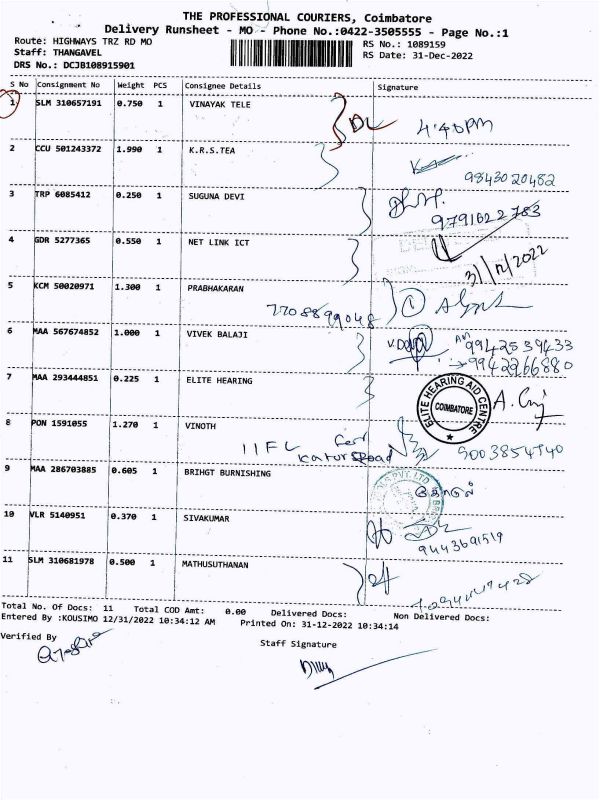 THE PROFESSIONAL COURIERS, Coimbatore
Delivery Runsheet - MO - Phone No.:0422-3505555 - Page No.:1
Route: HIGHWAYS TRZ RD MO
RS No.: 1089159
Staff: THANGAVEL
RS Date: 31-Dec-2022
DRS No.: DCJB108915901
S No Consignment No Weight PCS Consignee Details Signature
1 SLM 310657191 0.750 1 VINAYAK TELE
DL 4:40PM
2 CCU 501243372 1.990 1 K.R.S.TEA
9843020482
3 TRP 6085412 0.250 1 SUGUNA DEVI
9791622783
4 GDR 5277365 0.550 1 NET LINK ICT
31/12/2022
5 KCM 50020971 1.300 1 PRABHAKARAN
7708899048
6 MAA 567674852 1.000 1 VIVEK BALAJI
9942539433
9942266880
7 MAA 293444851 0.225 1 ELITE HEARING
ELITE HEARING AID CENTRE
COIMBATORE
8 PON 1591055 1.270 1 VINOTH
IIFL
Road
9 MAA 286703885 0.605 1 BRIHGT BURNISHING
10 VLR 5140951 0.370 1 SIVAKUMAR
9443691519
11 SLM 310681978 0.500 1 MATHUSUTHANAN
Total No. Of Docs: 11 Total COD Amt: 0.00 Delivered Docs: Non Delivered Docs:
Entered By :KOUSIMO 12/31/2022 10:34:12 AM Printed On: 31-12-2022 10:34:14
Verified By
Staff Signature